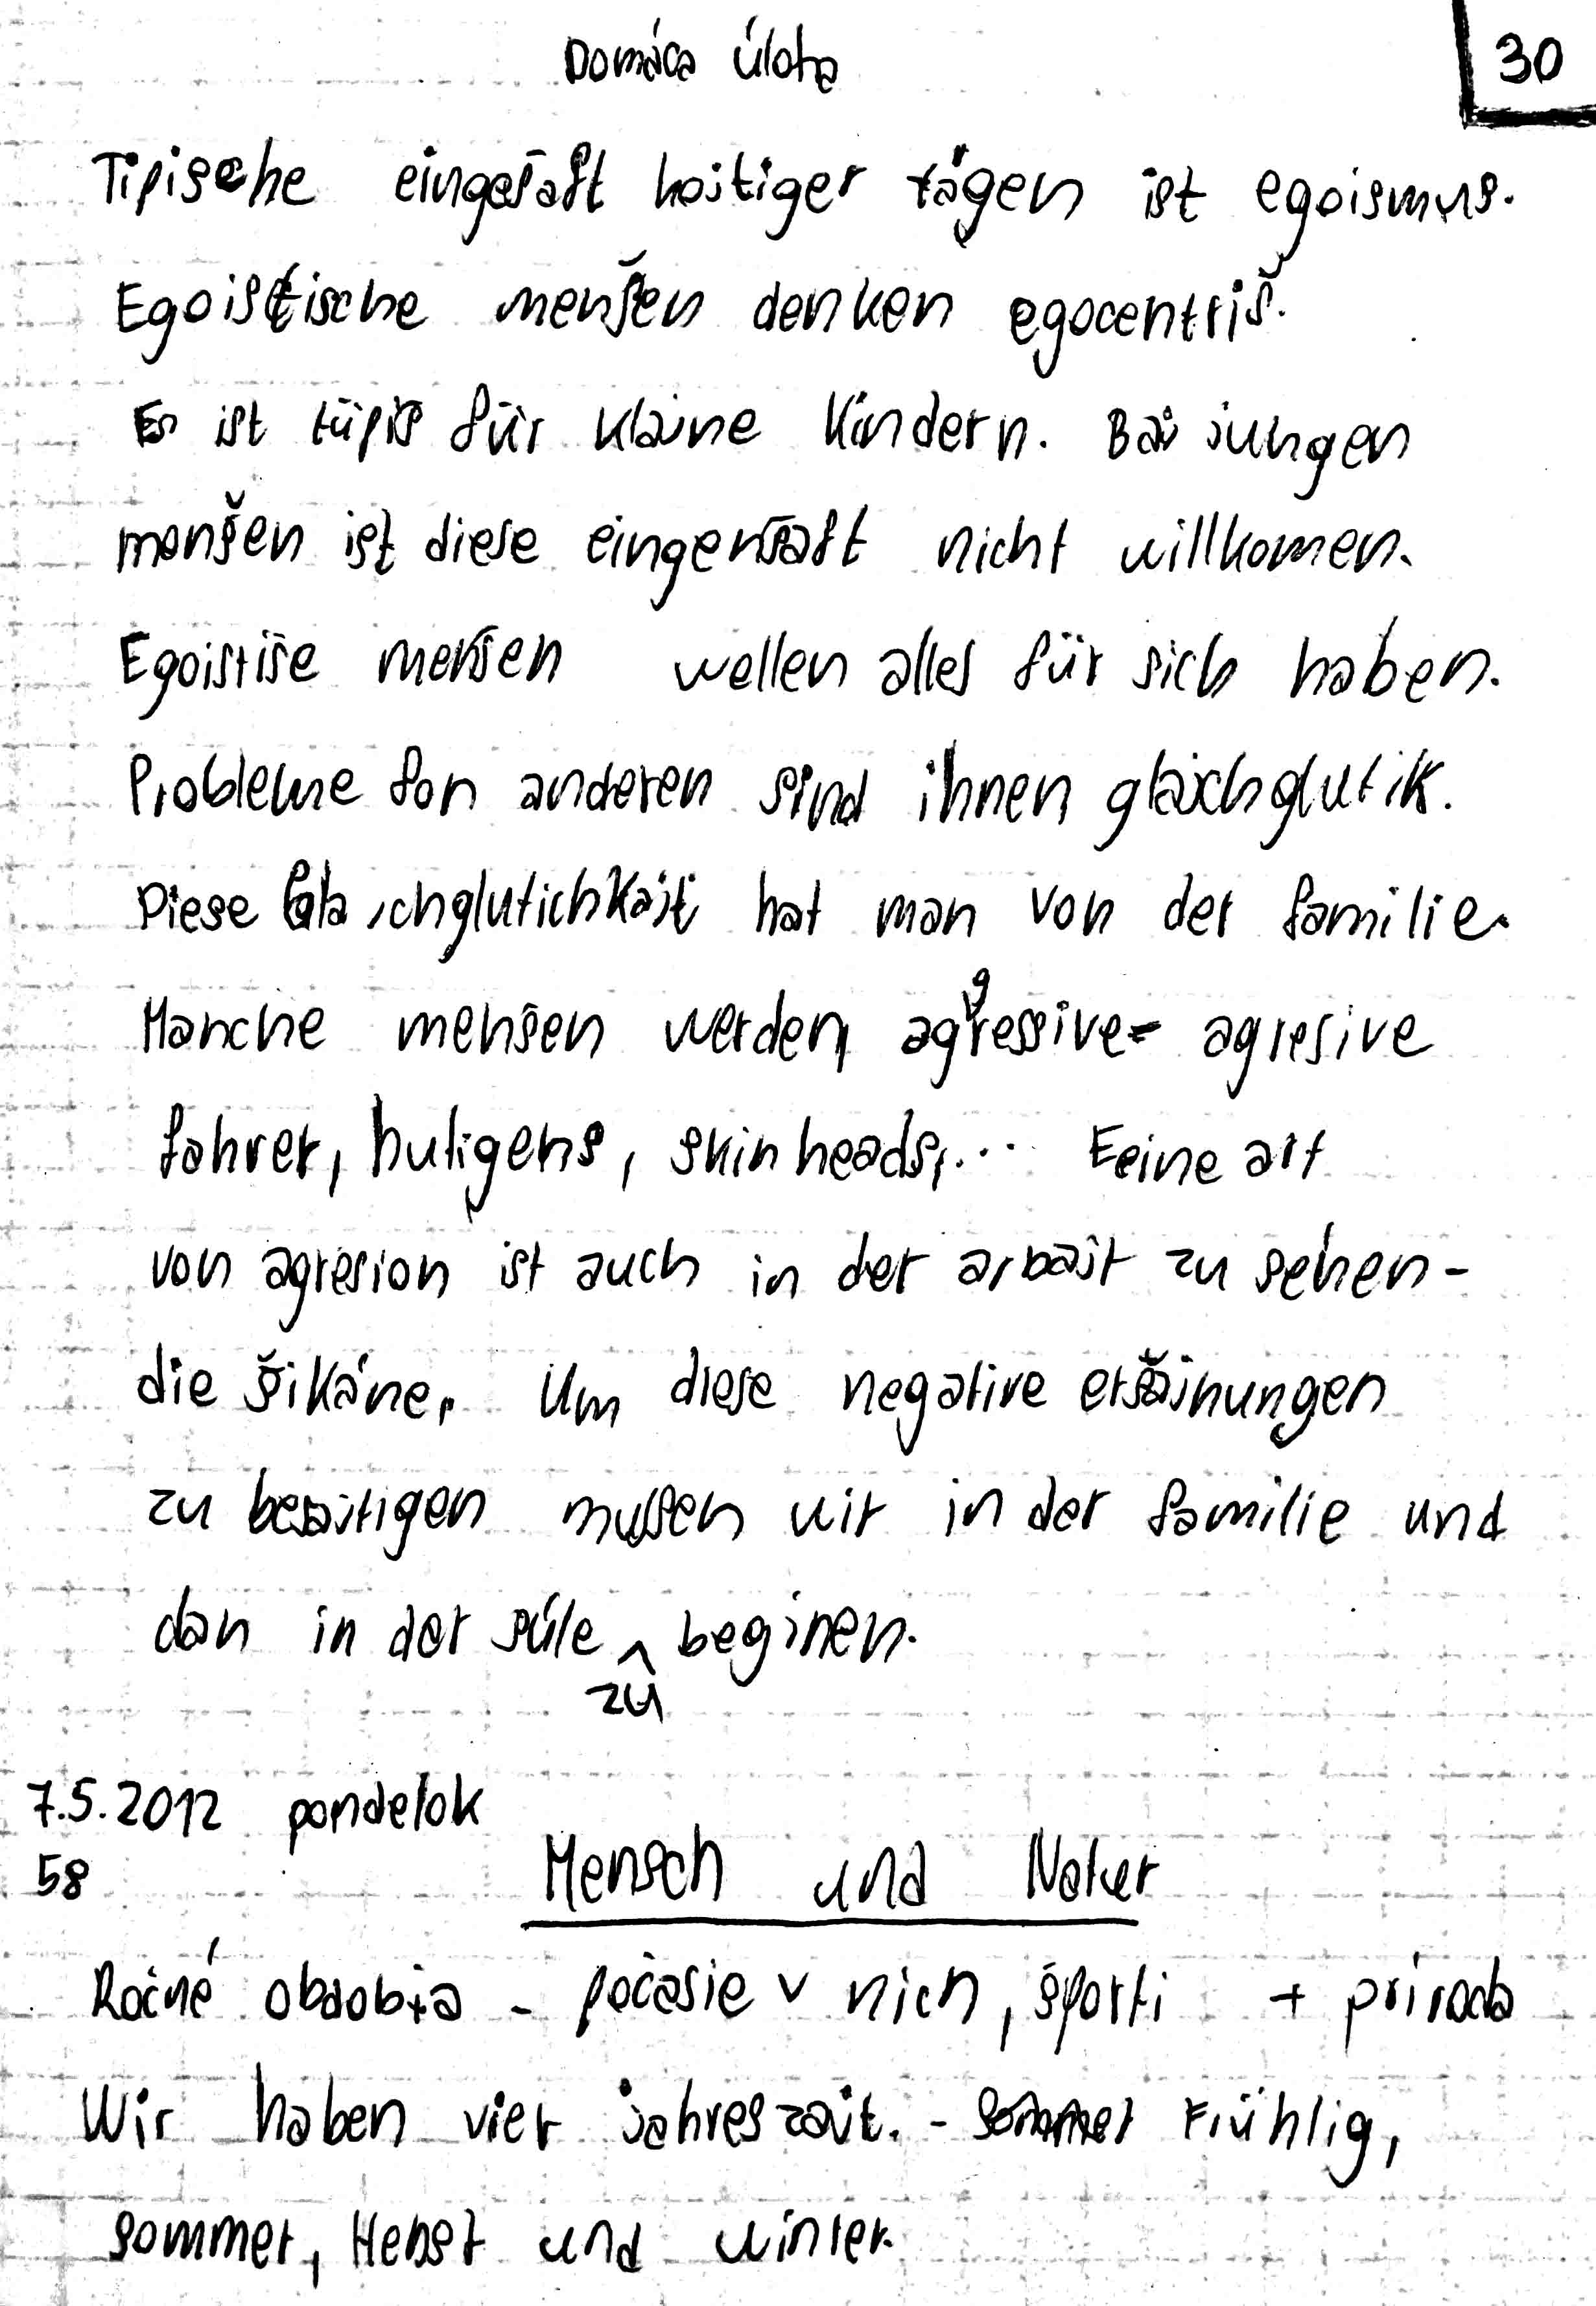 Domáca úloha
30
Tipische eingešaft hoitiger tägen ist egoismus.
Egoistische menšen denken egocentriš.
Es ist tüpiš für kläine Kindern. Bäi jungen
menšen ist diese eingenšaft nicht willkomen.
Egoistiše menšen wollen alles für sich haben.
Probleme fon anderen sind ihnen gläichglutik.
Diese Gläichglutichkäit hat man von der familie.
Manche menšen werden aggressive - agresive
fahrer, huligens, skinheads,... Eeine art
von agresion ist auch in der arbäit zu sehen -
die šikáne. Um diese negative eršäinungen
zu besäitigen mussen wir in der familie und
dan in der šúle zu beginen.
7.5.2012 pondelok
58
Mensch und Natur
Ročné obdobia - počasie v nich, športi + príroda
Wir haben vier jahreszäit. - Frühlig,
sommer, Hebst und winter.